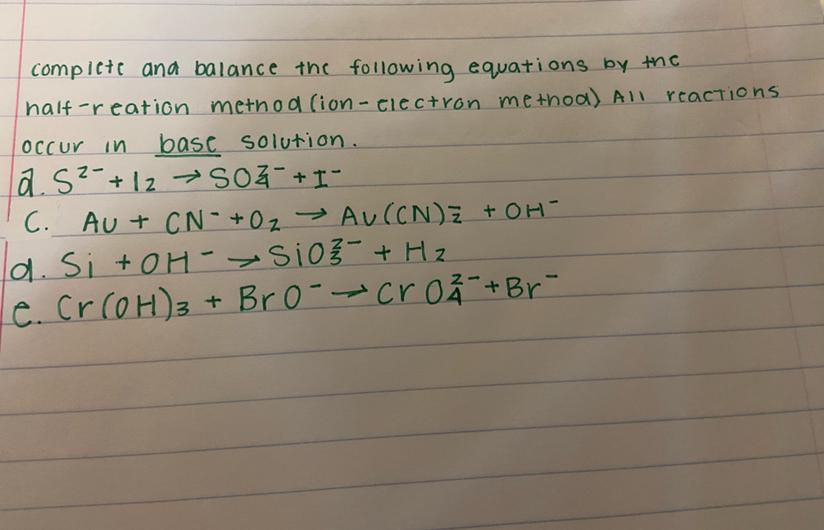 complete and balance the following equations by the
half-reation method (ion-electron method) All reactions
occur in base solution.
a. S²⁻ + I₂ → SO₄²⁻ + I⁻
C. Au + CN⁻ + O₂ → Au(CN)₂⁻ + OH⁻
d. Si + OH⁻ → SiO₃²⁻ + H₂
e. Cr(OH)₃ + BrO⁻ → CrO₄²⁻ + Br⁻